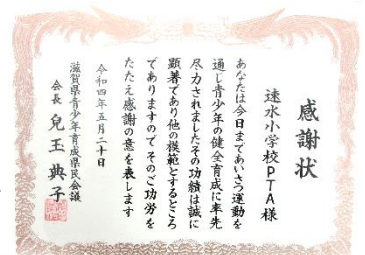 感謝状
速水小学校PTA様
あなたは今日まであいさつ運動を
通じ青少年の健全育成に率先
尽力されましたその功績は誠に
顕著であり他の模範とするところ
でありますのでそのご功労を
たたえ感謝の意を表します
令和四年五月二十日
滋賀県青少年育成県民会議
会長 兒玉典子